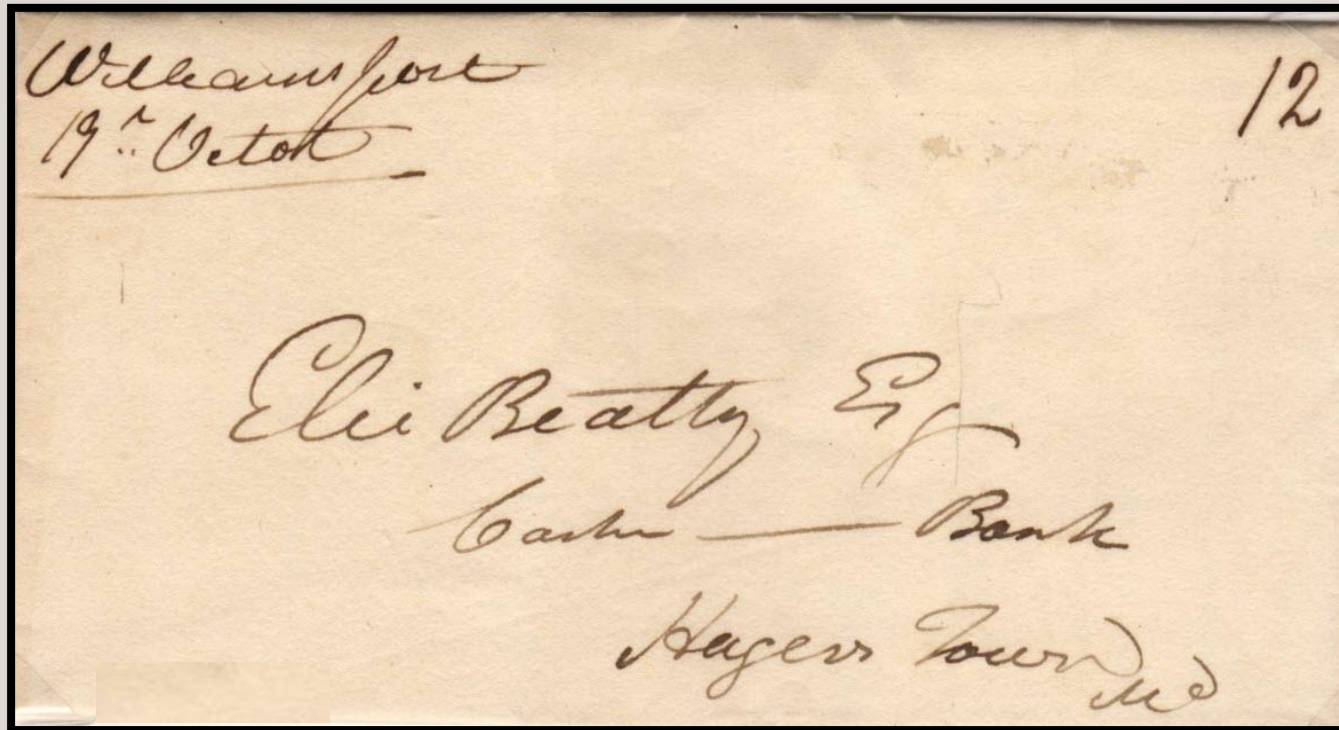 Williamsport
19th Octob
12
Elie Beatty Esq
Cashr — Bank
Hagers Town
Md